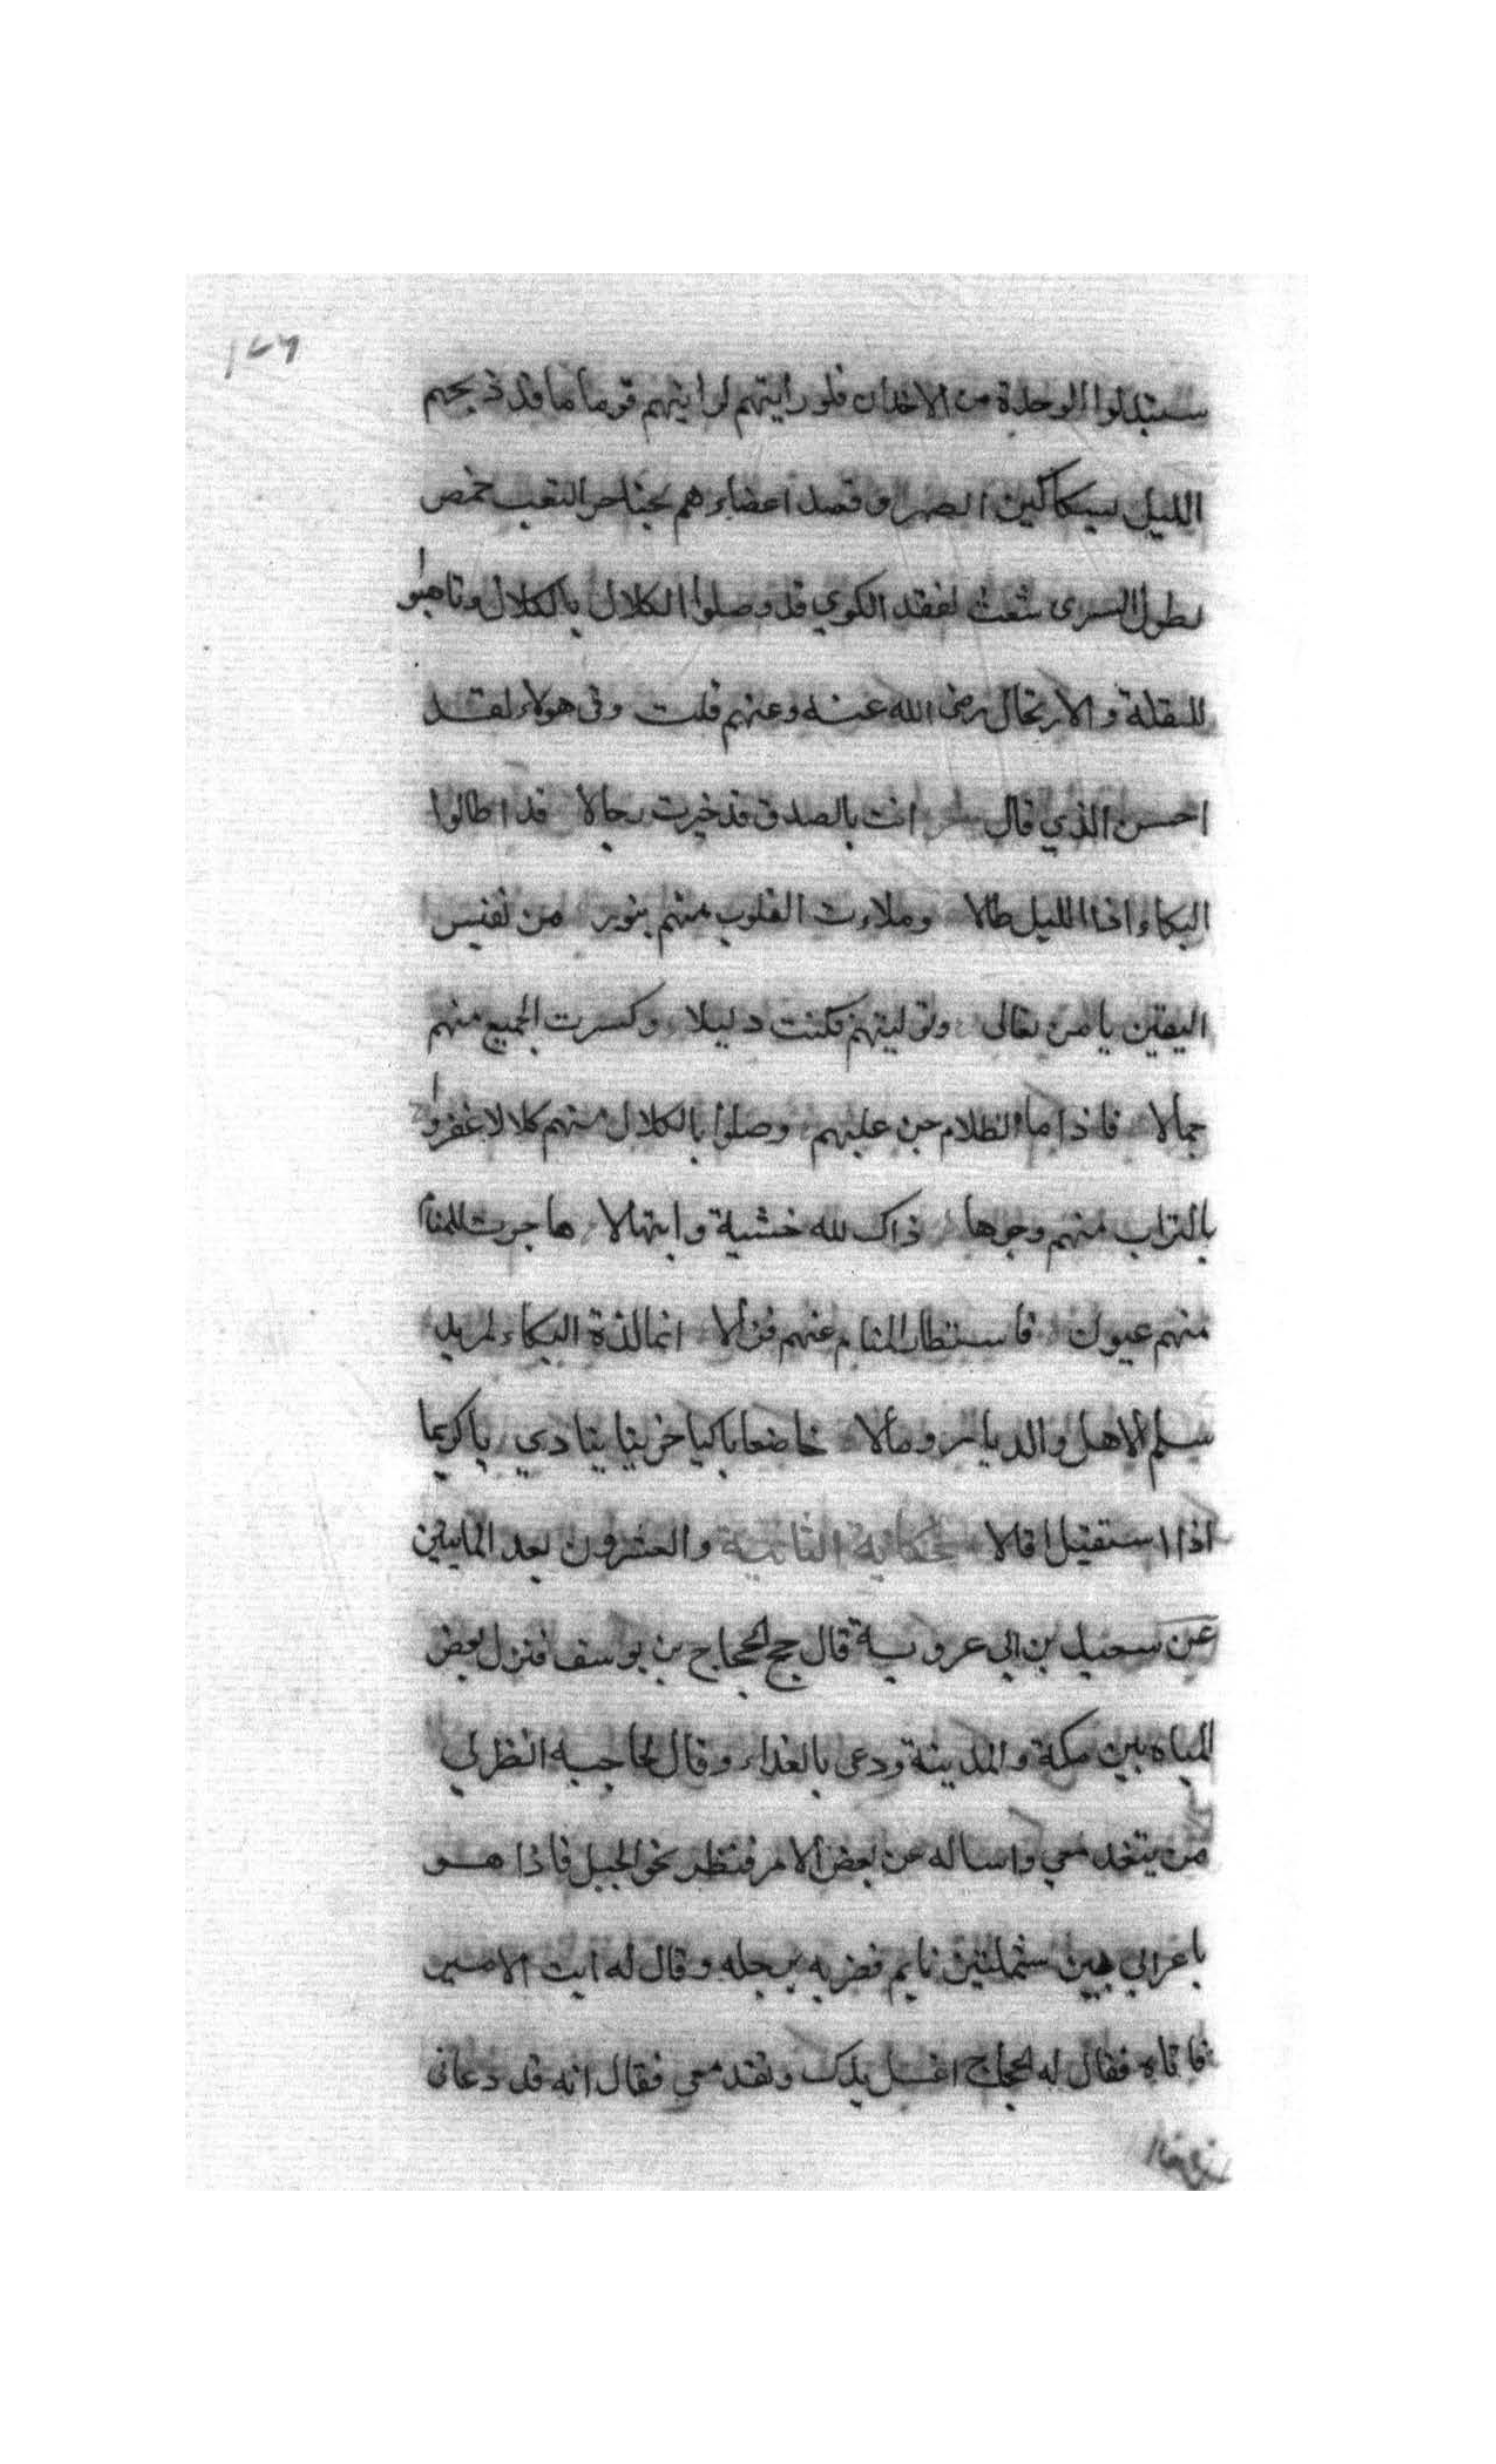 ١٤٦
ستبدلوا الوحدة من الاخدان فلو رايتهم لرايتهم قوما ما قد ذبحهم
الليل بسكاكين السهر وفصل اعضاءهم بخناجر التعب خمص
لطول السرى شعث لفقد الكوي قد وصلوا الكلال بالكلال وتاهبوا
للنقلة والارتحال رضى الله عنه وعنهم قلت وفى هولاء لقد
احسن الذي قال انت بالصدق قد خبرت رجالا قد اطالوا
البكاء اذا الليل طالا وملاءت القلوب منهم بنور من نفيس
اليقين يا من تعالى وتوليتهم فكنت دليلا وكسرت الجميع منهم
جمالا فاذا ما الظلام جن عليهم وصلوا بالكلال منهم كلالا عفروا
بالتراب منهم وجوها ذاك لله خشية وابتهالا هاجرت للمنام
منهم عيون فاستطار المنام عنهم فزالا انما لذة البكاء لمريد
سلم الاهل والديار ومالا خاضعا باكيا حزينا ينادي ياكريما
اذا استقيل اقالا الحكاية الثانية والعشرون بعد المايتين
عن سعيد بن ابي عروبة قال حج الحجاج بن يوسف فنزل بعض
المياه بين مكة والمدينة ودعى بالغداء وقال لحاجبه انظر لي
من يتغد معي واساله عن بعض الامر فنظر نحو الجبل فاذا هو
باعرابي بين شملتين نايم فضربه برجله وقال له ايت الامير
فاتاه فقال له الحجاج اغسل يدك وتغد معي فقال انه قد دعانى